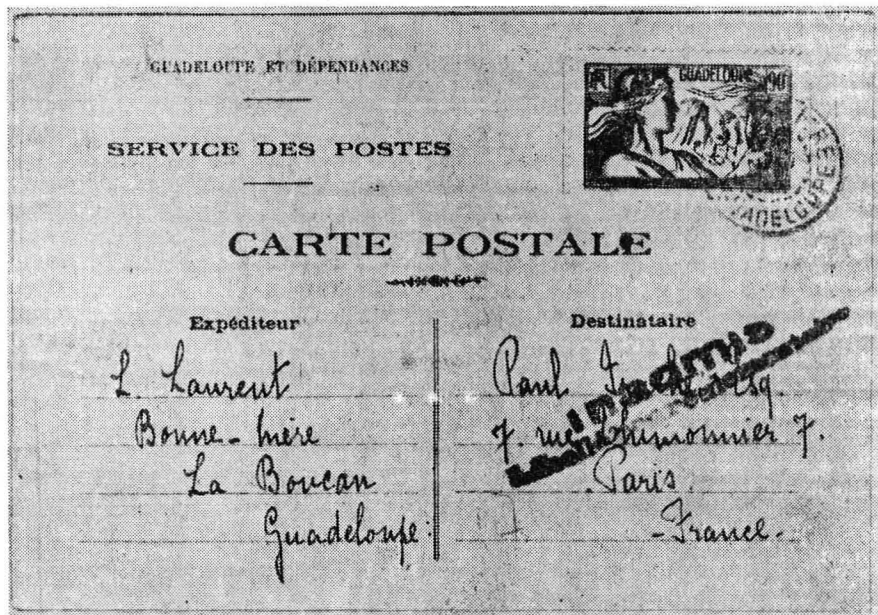 GUADELOUPE ET DÉPENDANCES
SERVICE DES POSTES
RF GUADELOUPE 90
GUADELOUPE
CARTE POSTALE
Expéditeur
L. Laurent
Bonne-Mère
La Boucan
Guadeloupe
Destinataire
Paul Esq
7. rue 7.
Paris
-France-
Inadmis